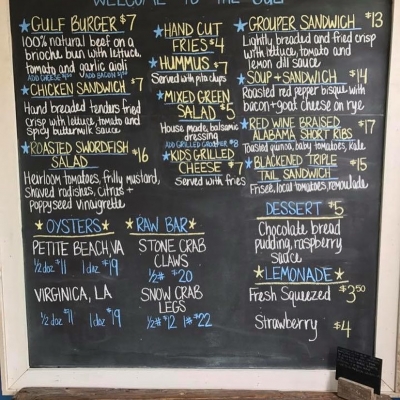 WELCOME TO THE
GULF BURGER $7
100% natural beef on a
brioche bun with lettuce,
tomato and garlic aioli
ADD CHEESE ADD BACON
CHICKEN SANDWICH $7
Hand breaded tenders fried
crisp with lettuce, tomato and
Spicy buttermilk sauce
ROASTED SWORDFISH
SALAD $16
Heirloom tomatoes, frilly mustard,
Shaved radishes, citrus +
poppyseed vinaigrette
★ OYSTERS ★
PETITE BEACH, VA
1/2 doz $11 1 doz $19
VIRGINICA, LA
1/2 doz $11 1 doz $19
HAND CUT
FRIES $4
HUMMUS $7
Served with pita chips
MIXED GREEN
SALAD $5
House made, balsamic
dressing
ADD GRILLED GROUPER $8
KIDS GRILLED
CHEESE $7
Served with fries
★ RAW BAR ★
STONE CRAB
CLAWS
1/2# $20
SNOW CRAB
LEGS
1/2# $12 1# $22
GROUPER SANDWICH $13
Lightly breaded and fried crisp
with lettuce, tomato and
lemon dill sauce
SOUP + SANDWICH $14
Roasted red pepper bisque with
bacon + goat cheese on rye
RED WINE BRAISED
ALABAMA SHORT RIBS $17
Toasted quinoa, baby tomatoes, kale
BLACKENED TRIPLE
TAIL SANDWICH $15
Frisee, local tomatoes, remoulade
DESSERT $5
Chocolate bread
pudding, raspberry
sauce
★ LEMONADE ★
Fresh Squeezed $3.50
Strawberry $4